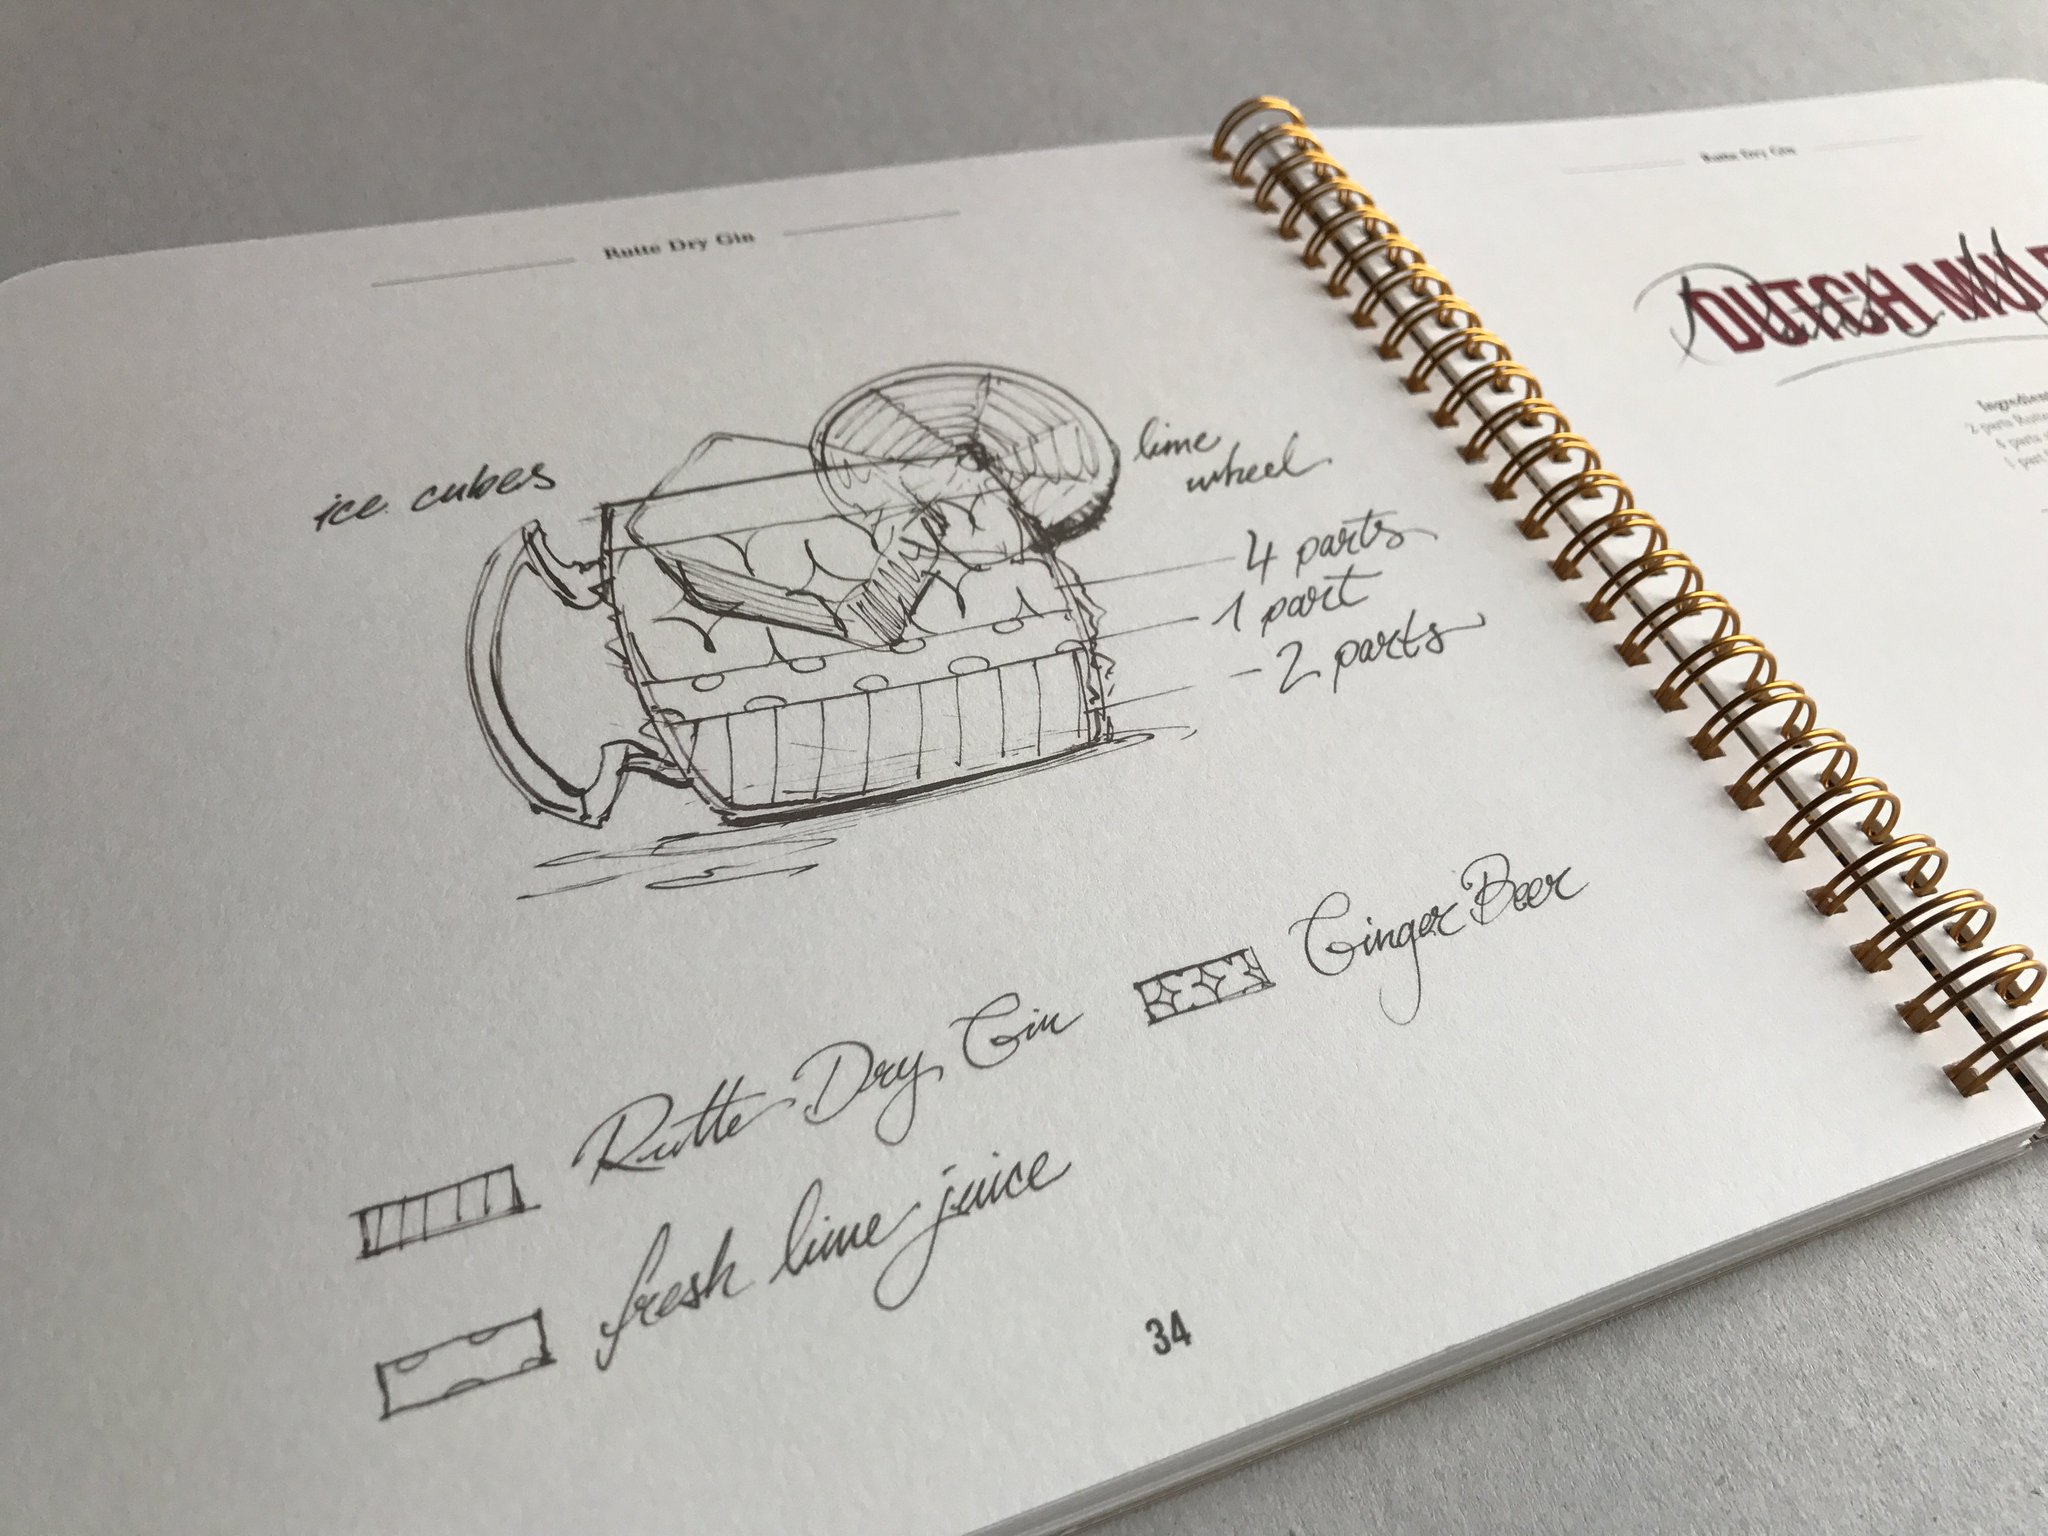 Rutte Dry Gin
ice cubes
lime
wheel
4 parts
1 part
2 parts
Ginger Beer
Rutte Dry Gin
fresh lime juice
34
Rutte Dry Gin
DUTCH
2 parts
4 parts
1 part